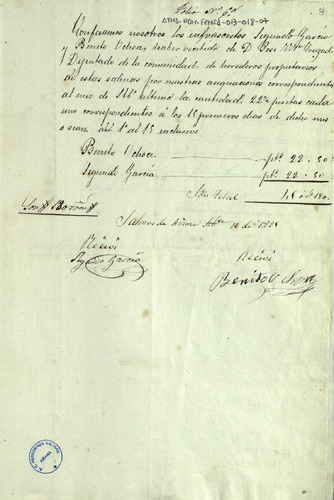 Folio Nº 6º
8
ATHA-DGH-FCHSA-013-018-07
Confesamos nosotros los infrascritos Segundo Garcia
y Benito Ochoa haber recibido de D. Jose
Diputado de la comunidad de herederos propietarios
de estas salinas por nuestras asignaciones correspondientes
al mes de último la cantidad 22 ptas cada
uno correspondientes á los 15 primeros dias de dicho mes
o sean del 1º al 15 inclusive
Benito Ochoa ptas 22.50
Segundo Garcia ptas 22.50
Son total 45
Son
Salinas de Añana 10 de
Recivi
Segundo Garcia
Recivi
Benito Ochoa
SALINAS
AÑANA